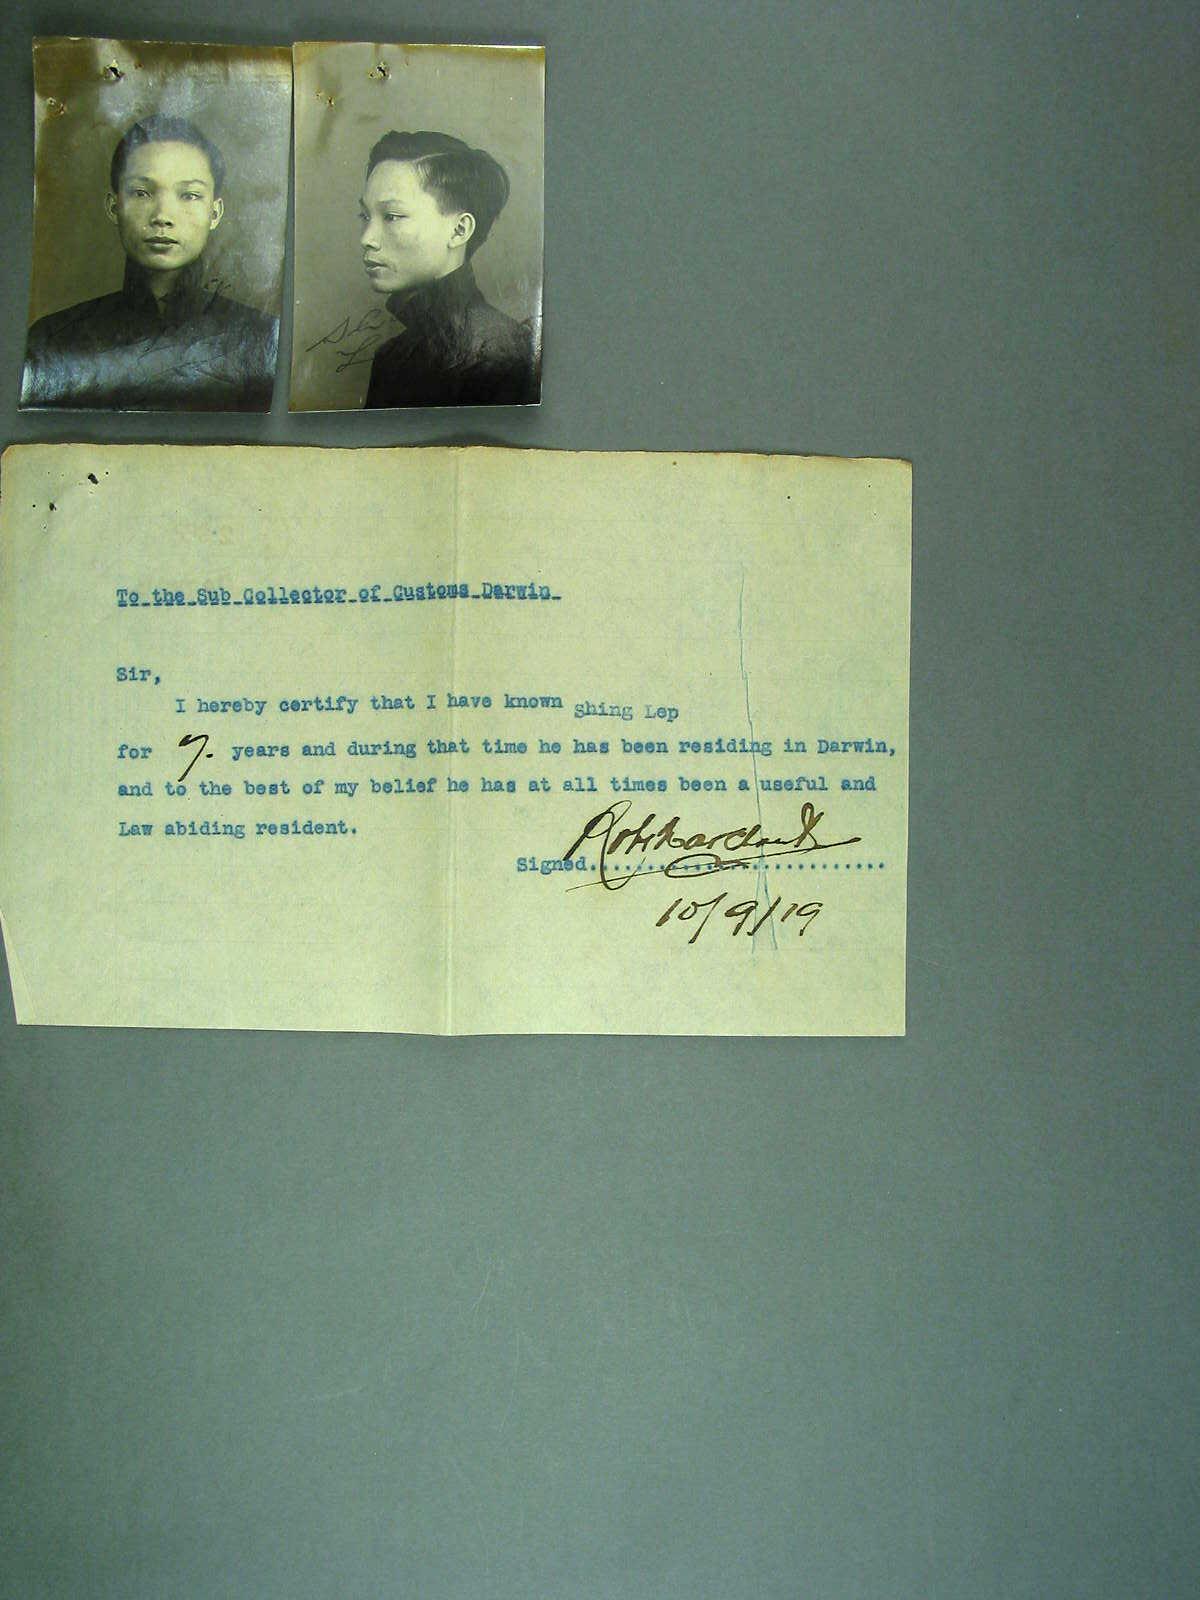 To the Sub Collector of Customs Darwin
Sir,
I hereby certify that I have known Shing Lep
for 7. years and during that time he has been residing in Darwin,
and to the best of my belief he has at all times been a useful and
Law abiding resident.
Signed...........................
10/9/19